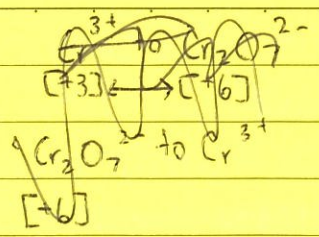 Cr³⁺ to Cr₂O₇²⁻
[+3] ↔ [+6]
Cr₂O₇²⁻ to Cr³⁺
[+6]